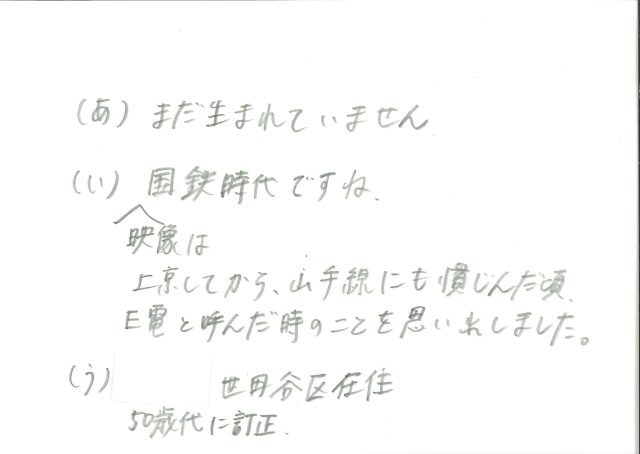 (あ) まだ生まれていません
(い) 国鉄時代ですね、
映像は
上京してから、山手線にも慣じんだ頃、
E電と呼んだ時のことを思い出しました。
(う) 世田谷区在住
50歳代に訂正.